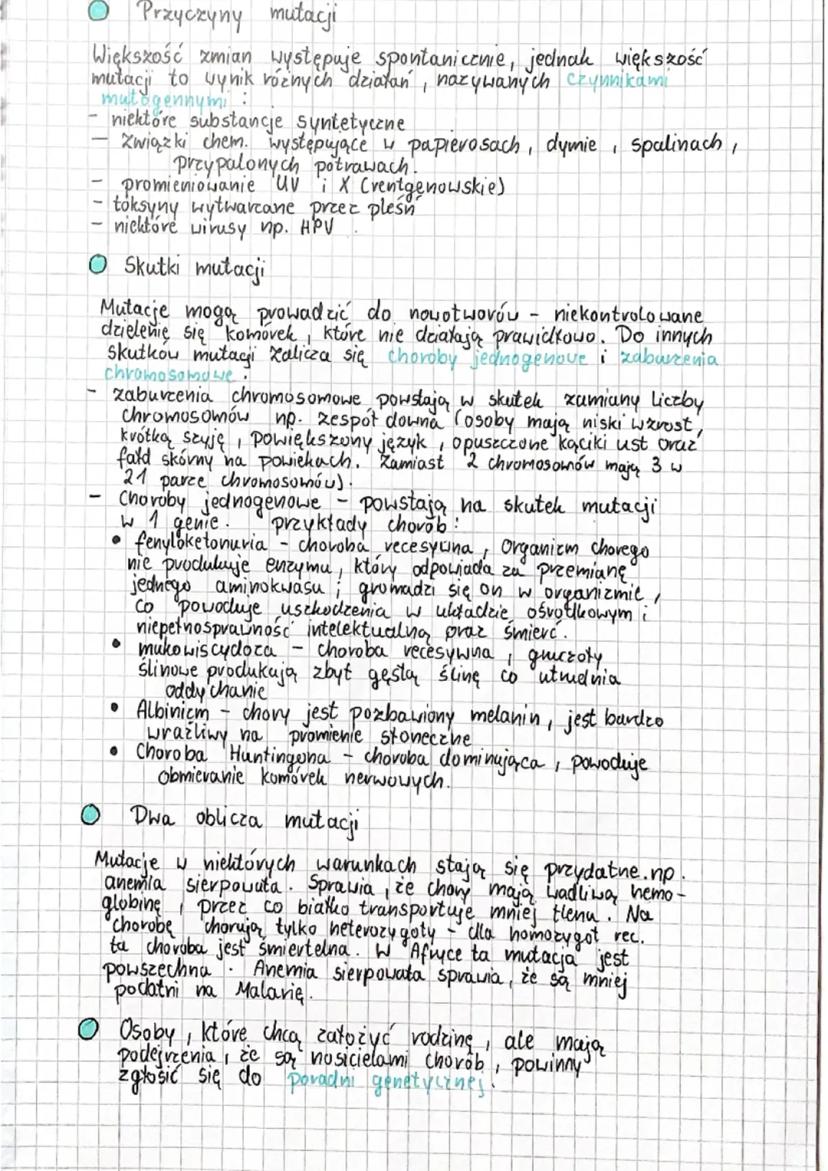 Przyczyny mutacji
Większość zmian występuje spontanicznie, jednak większość
mutacji to wynik różnych działań, nazywanych czynnikami
mutogennymi:
- niektóre substancje syntetyczne
- związki chem. występujące w papierosach, dymie, spalinach,
przypalonych potrawach.
- promieniowanie UV i X (rentgenowskie)
- toksyny wytwarzane przez pleśń
- niektóre wirusy np. HPV.
Skutki mutacji
Mutacje mogą prowadzić do nowotworów - niekontrolowane
dzielenie się komórek, które nie działają prawidłowo. Do innych
skutków mutacji zalicza się choroby jednogenowe i zaburzenia
chromosomowe:
- zaburzenia chromosomowe powstają w skutek zamiany liczby
chromosomów np. zespół downa (osoby mają niski wzrost,
krótką szyję, powiększony język, opuszczone kąciki ust oraz
fałd skórny na powiekach. Zamiast 2 chromosomów mają 3 w
21 parze chromosomów).
- Choroby jednogenowe - powstają na skutek mutacji
w 1 genie. przykłady chorób:
• fenyloketonuria - choroba recesywna, Organizm chorego
nie produkuje enzymu, który odpowiada za przemianę
jednego aminokwasu i gromadzi się on w organizmie,
co powoduje uszkodzenia w układzie ośrodkowym i
niepełnosprawność intelektualną oraz śmierć.
• mukowiscydoza - choroba recesywna, gruczoły
ślinowe produkują zbyt gęstą ślinę co utrudnia
oddychanie
• Albinizm - chory jest pozbawiony melanin, jest bardzo
wrażliwy na promienie słoneczne
• Choroba Huntingona - choroba dominująca, powoduje
obmieranie komórek nerwowych.
Dwa oblicza mutacji
Mutacje w niektórych warunkach stają się przydatne.np.
anemia sierpowata. Sprawia, że chory mają wadliwą hemo-
globinę, przez co białko transportuje mniej tlenu. Na
chorobę chorują tylko heterozygoty - dla homozygot rec.
ta choroba jest śmiertelna. W Afryce ta mutacja jest
powszechna. Anemia sierpowata sprawia, że są mniej
podatni na Malarię.
Osoby, które chcą założyć rodzinę, ale mają
podejrzenia, że są nosicielami chorób, powinny
zgłosić się do poradni genetycznej.